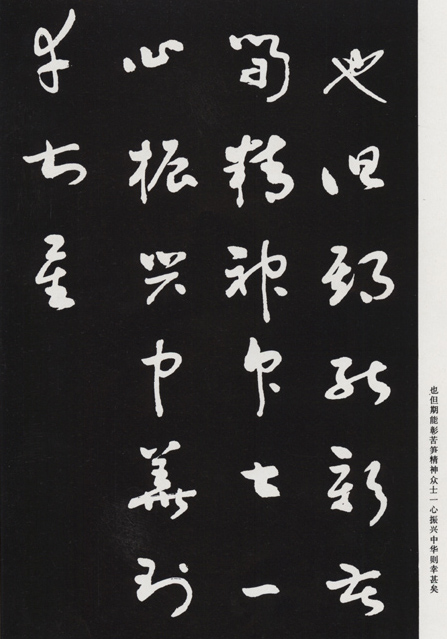 也但期能彰苦
筍精神众士一
心振兴中華则
幸甚矣
也但期能彰苦笋精神众士一心振兴中华则幸甚矣